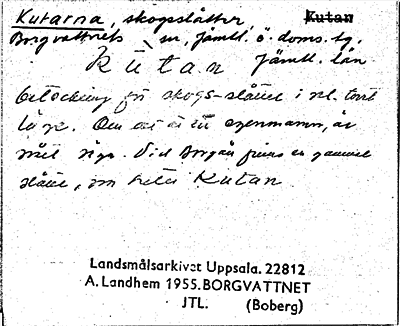 Kutarna, skogsslåtter, Kutan
Borgvattnets sn, Jämtl. ö. doms. tg.
Kutan Jämtl. län
beteckning för skogs-slåtter i rel. torrt
läge. Om det är ett egennamn, är
svårt säga. Vid Borgån finns en gammal
slåtter, som heter Kutan
Landsmålsarkivet Uppsala. 22812
A. Landhem 1955. BORGVATTNET
JTL. (Boberg)